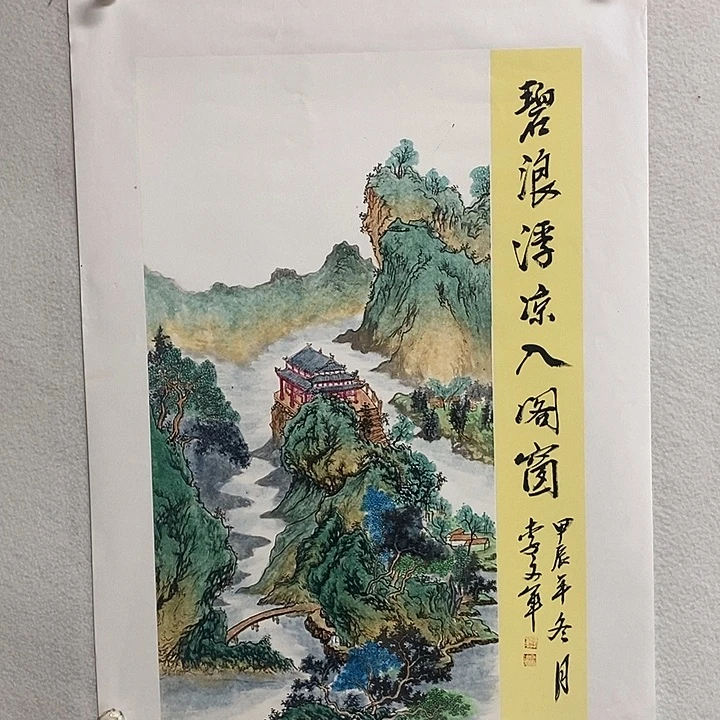 碧浪浮凉入阁窗
甲辰年冬月
李文军